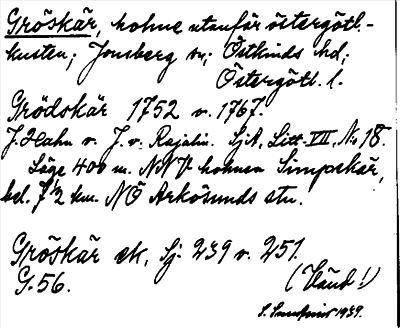 Gröskär, holme utanför östergötl.-
kusten; Jonsberg sn; Östkinds hd;
Östergötl. l.
Grödskär 1752 o. 1767.
J. Hahn o. J. v. Rajalin. SjA, Litt. VII, No 18.
Läge 400 m. NNV holmen Simpskär,
bel. 7½ km. NÖ Arkösunds stn.
Gröskär ek, Sj. 239 o. 251.
G. 56.
(Händ!)
1939.